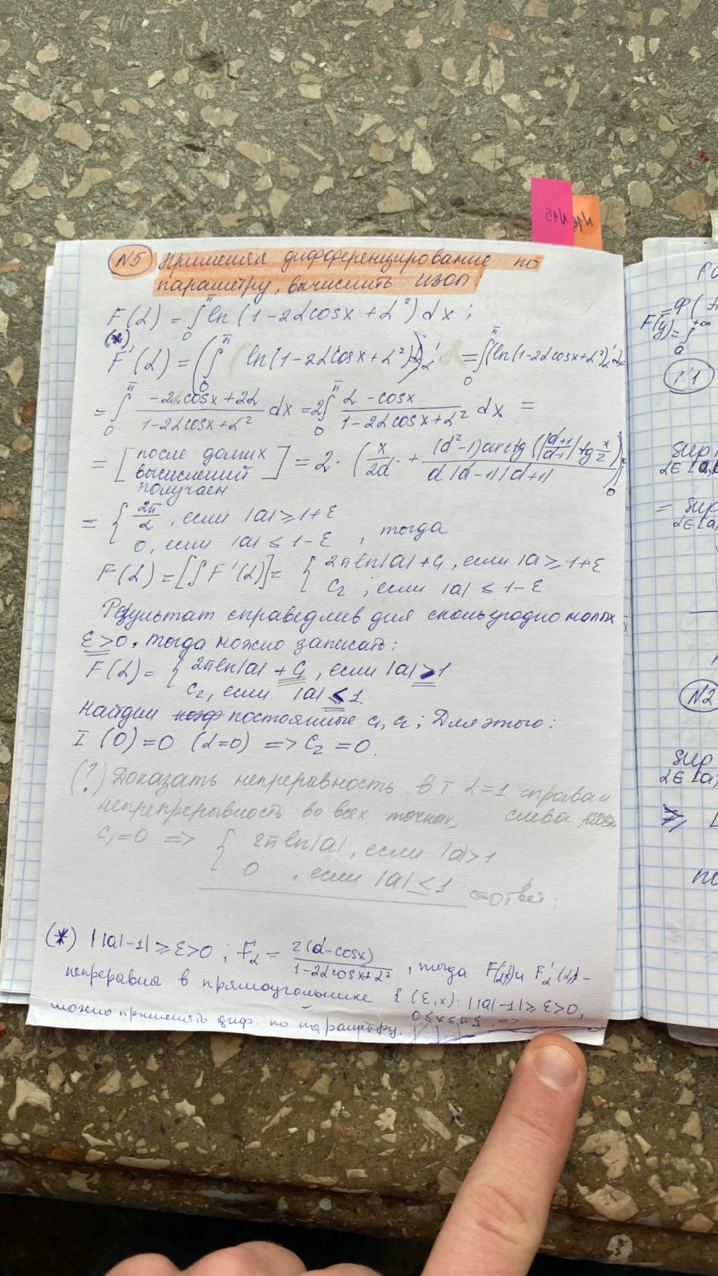 N5 Применяя дифференцирование по
параметру, вычислить ИЗОП:
F(α) = ∫₀^π ln (1-2αcosx + α²) dx ;
(*)
F'(α) = (∫₀^π ln(1-2αcosx+α²))'α = ∫₀^π (ln(1-2αcosx+α²))'α dx
= ∫₀^π (-2cosx+2α)/(1-2αcosx+α²) dx = 2∫₀^π (α-cosx)/(1-2αcosx+α²) dx =
= [после долгих вычислений получаем] = 2·(x/2α + (α²-1)arctg(|α+1|/|α-1| tg x/2)/(α|α-1||α+1|))|₀^π
= { 2π/α , если |α| ≥ 1+ε
0, если |α| ≤ 1-ε , тогда
F(α) = [∫F'(α)] = { 2πln|α|+C₁, если |α| ≥ 1+ε
C₂ , если |α| ≤ 1-ε
Результат справедлив для сколь угодно малых
ε>0. Тогда можно записать:
F(α) = { 2πln|α| + C₁, если |α| > 1
C₂, если |α| ≤ 1.
Найдём постоянные C₁, C₂; Для этого:
I (0)=0 (α=0) => C₂ = 0.
(?) Доказать непреравность в т. α=1 справа и
непрепрерывность во всех точках, слева
C₁=0 => { 2πln|α|, если |α|>1
0 , если |α| ≤ 1 = ответ:
(*) ||α|-1| ≥ ε>0 ; F'α = 2(α-cosx)/(1-2αcosx+α²) , тогда F(α) и F'α(α) -
непреравны в прямоугольнике { (ε,x): ||α|-1| ≥ ε>0,
0≤x≤π} =>
можно применять диф. по параметру.
N15
N16
F(y) = ∫
a
1.1
sup
= sup
N2
sup